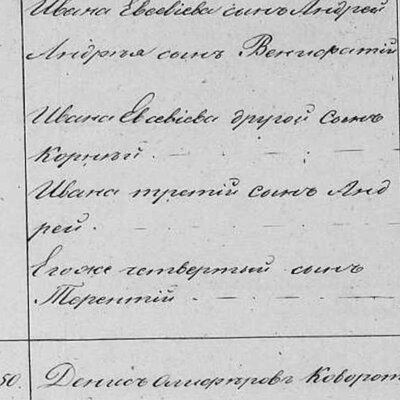 Ивана Евсевіева сынъ Андрей
Андрея сынъ Венифатій
Ивана Евсевіева другой сынъ
Корнѣй.
Ивана третій сынъ Анд
рей.
Егоже четвертый сынъ
Терентій
50. Денисъ